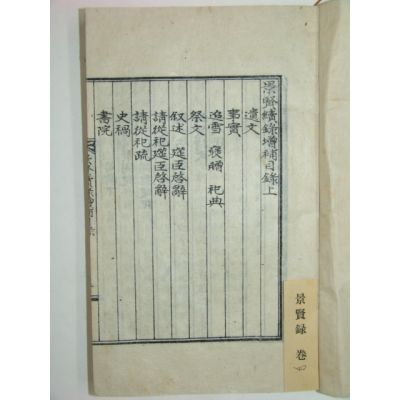 景賢續錄增補目錄上
遺文
事實
追雪 褒贈 祀典
祭文
叙述 筵臣啓辭
請從祀筵臣啓辭
請從祀疏
史禍
書院
景賢錄 卷